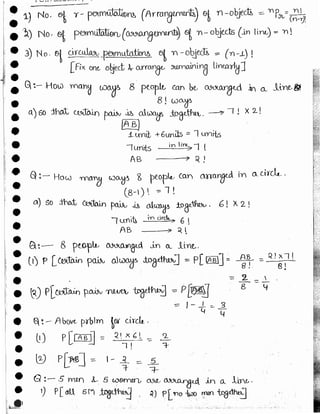 1) No. of r - permutations (Arrangements) of n-objects = nPr = n! / (n-r)!
2) No. of permutations (arrangements) of n-objects (in line) = n!
3) No. of circular permutations of n-objects = (n-1)!
[Fix one object & arrange remaining linearly]
Q:- How many ways 8 people can be arranged in a line.
8! ways
a) so that certain pair is always together. → 7! x 2!
[AB]
1 unit + 6 units = 7 units
7 units in line → 7!
AB → 2!
Q:- How many ways 8 people can arranged in a circle.
(8-1)! = 7!
a) so that certain pair is always together. 6! x 2!
7 units in circle → 6!
AB → 2!
Q:- 8 people arranged in a line.
(1) P[certain pair always together] = P[AB] = AB / 8! = 2! x 7! / 8!
= 2/8 = 1/4
(2) P[certain pair never together] = P[AB]
= 1 - 1/4 = 3/4
Q:- Above prblm for circle.
(1) P[AB] = 2! x 6! / 7! = 2/7
(2) P[AB] = 1 - 2/7 = 5/7
Q:- 5 men & 5 women are arranged in a line.
1) P[all 5M together] 2) P[no two men together]